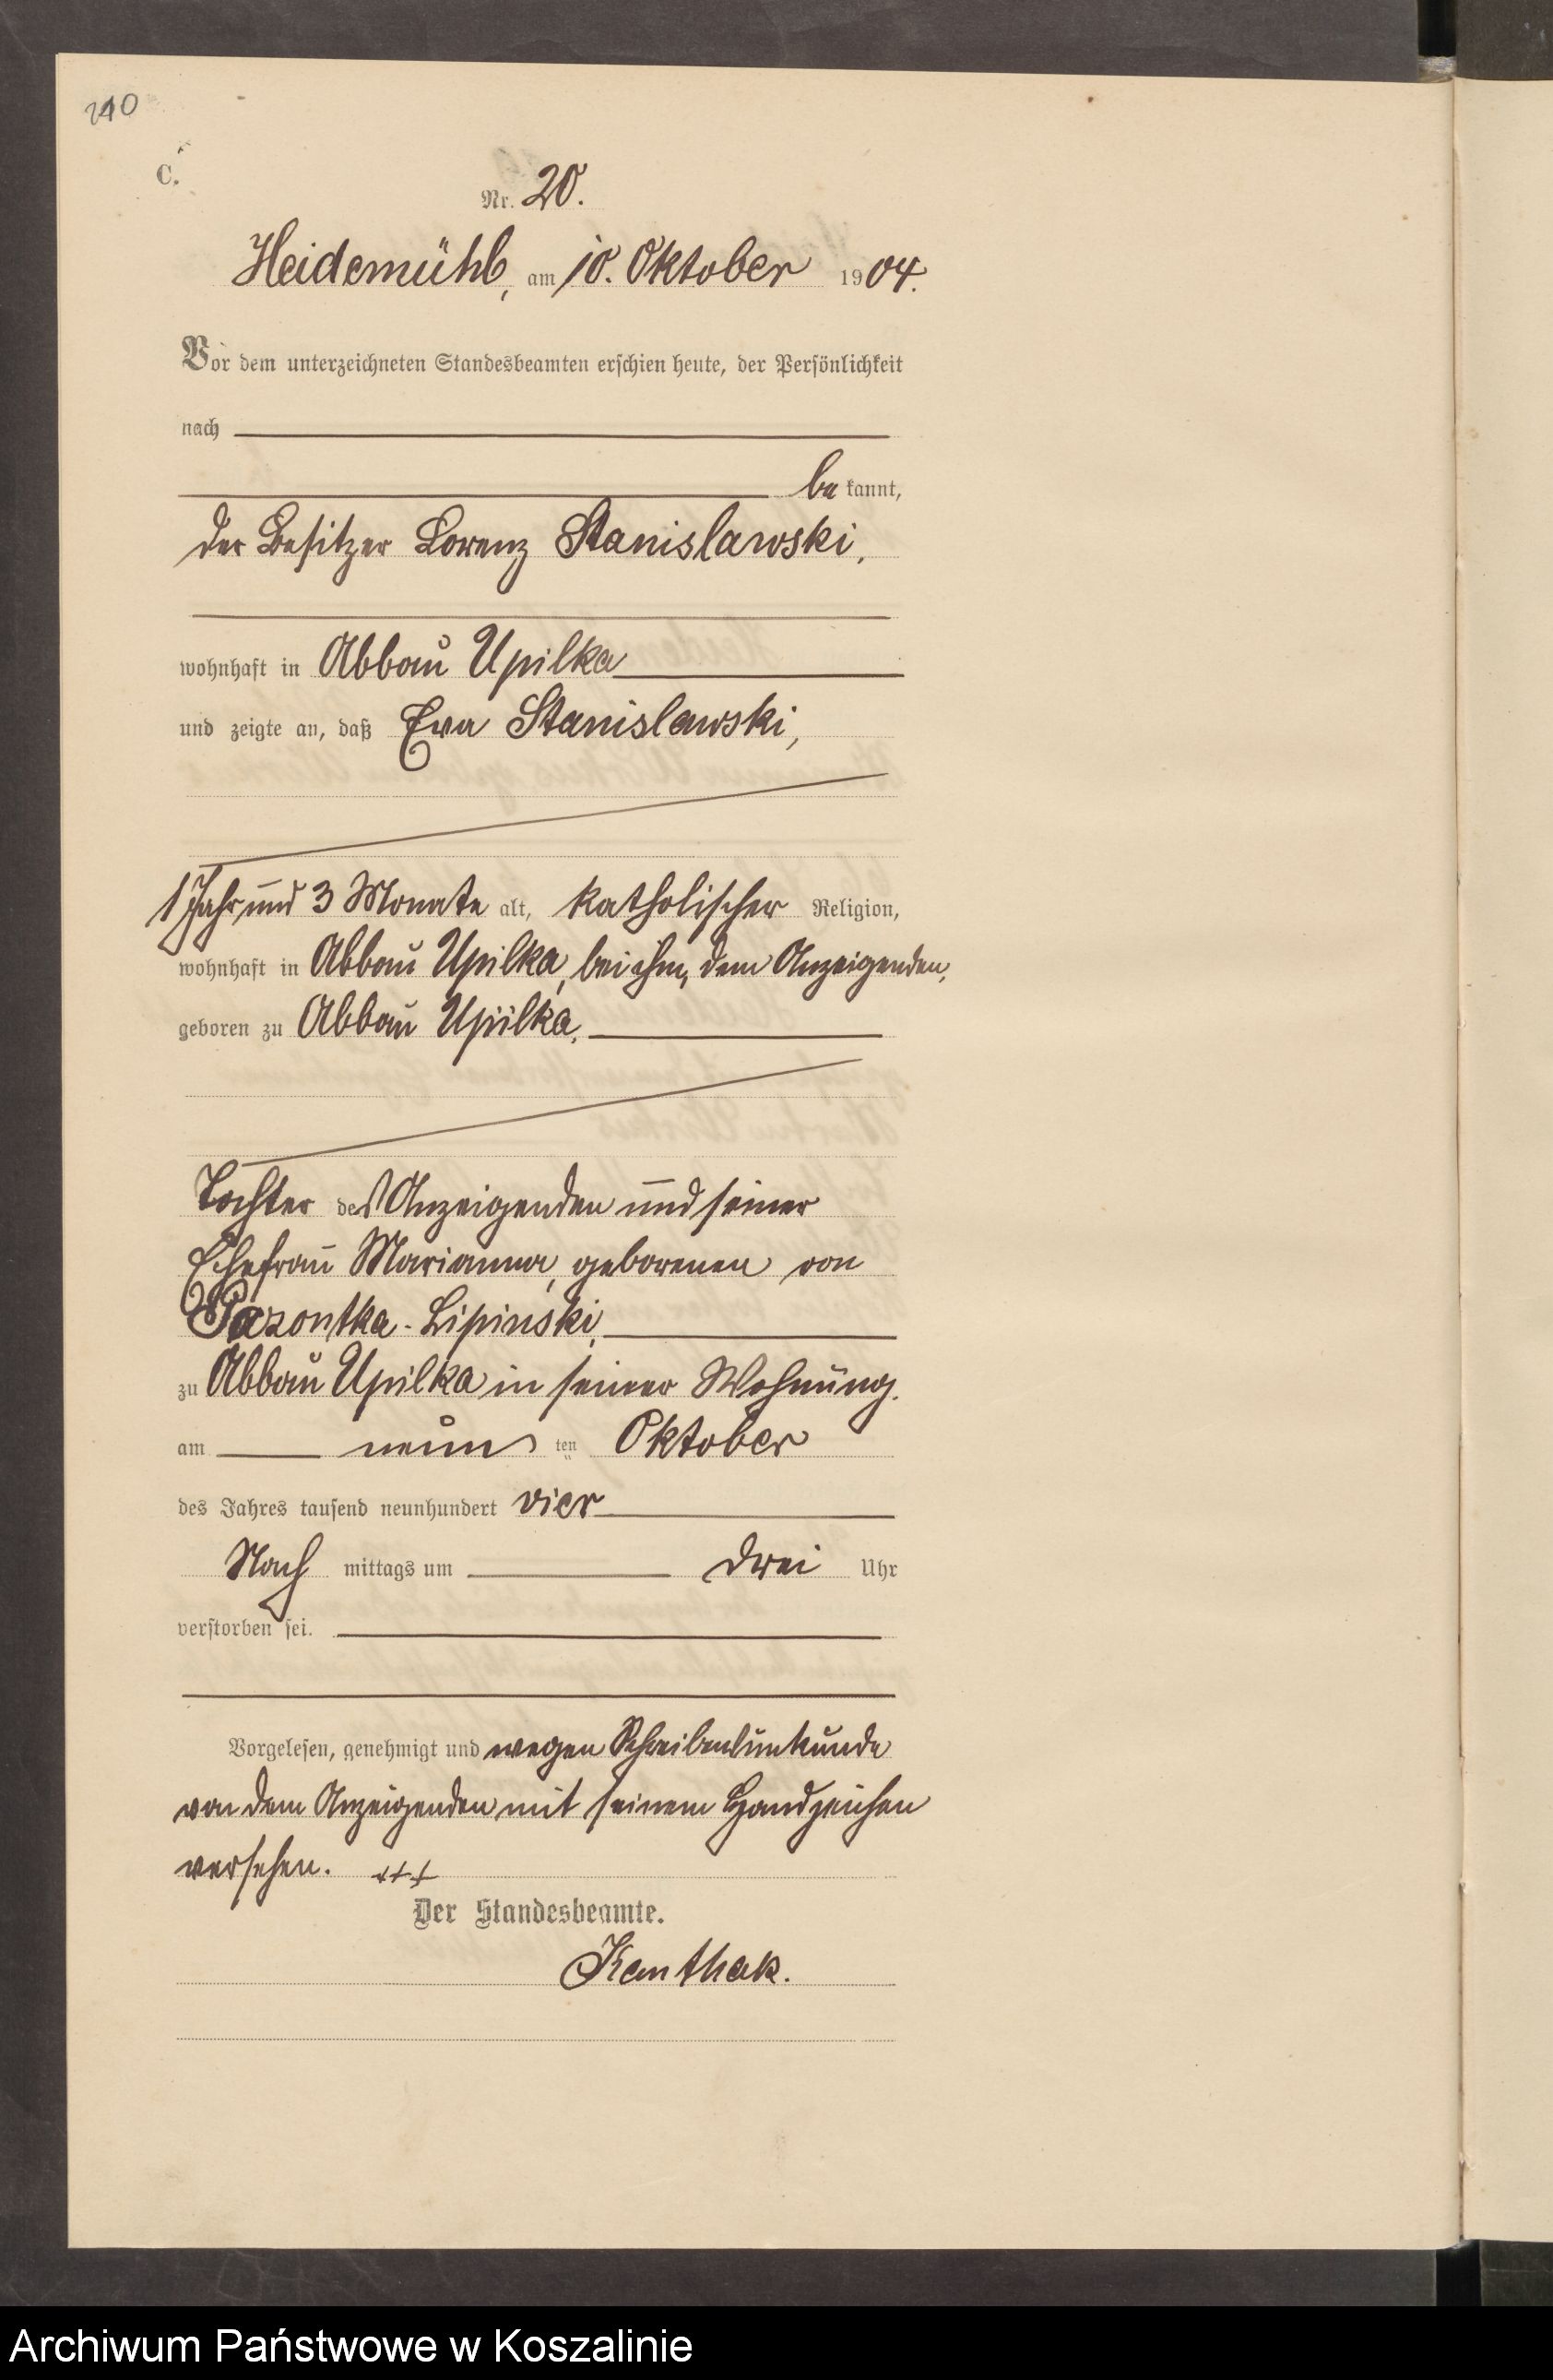 240
C.
Nr. 20.
Heidemühl, am 10. Oktober 1904.
Vor dem unterzeichneten Standesbeamten erschien heute, der Persönlichkeit
nach
be kannt,
der Besitzer Lorenz Stanislawski,
wohnhaft in Abbau Upilka
und zeigte an, daß Eva Stanislawski,
1 Jahr und 3 Monate alt, katholischer Religion,
wohnhaft in Abbau Upilka, bei ihm, dem Anzeigenden,
geboren zu Abbau Upilka,
Tochter des Anzeigenden und seiner
Ehefrau Marianna, geborenen von
Pazontka-Lipinski,
zu Abbau Upilka in seiner Wohnung,
am neun ten Oktober
des Jahres tausend neunhundert vier
Nach mittags um drei Uhr
verstorben sei.
Vorgelesen, genehmigt und wegen Schreibensunkunde
von dem Anzeigenden mit seinem Handzeichen
versehen. +++
Der Standesbeamte.
Kanthak.
Archiwum Państwowe w Koszalinie